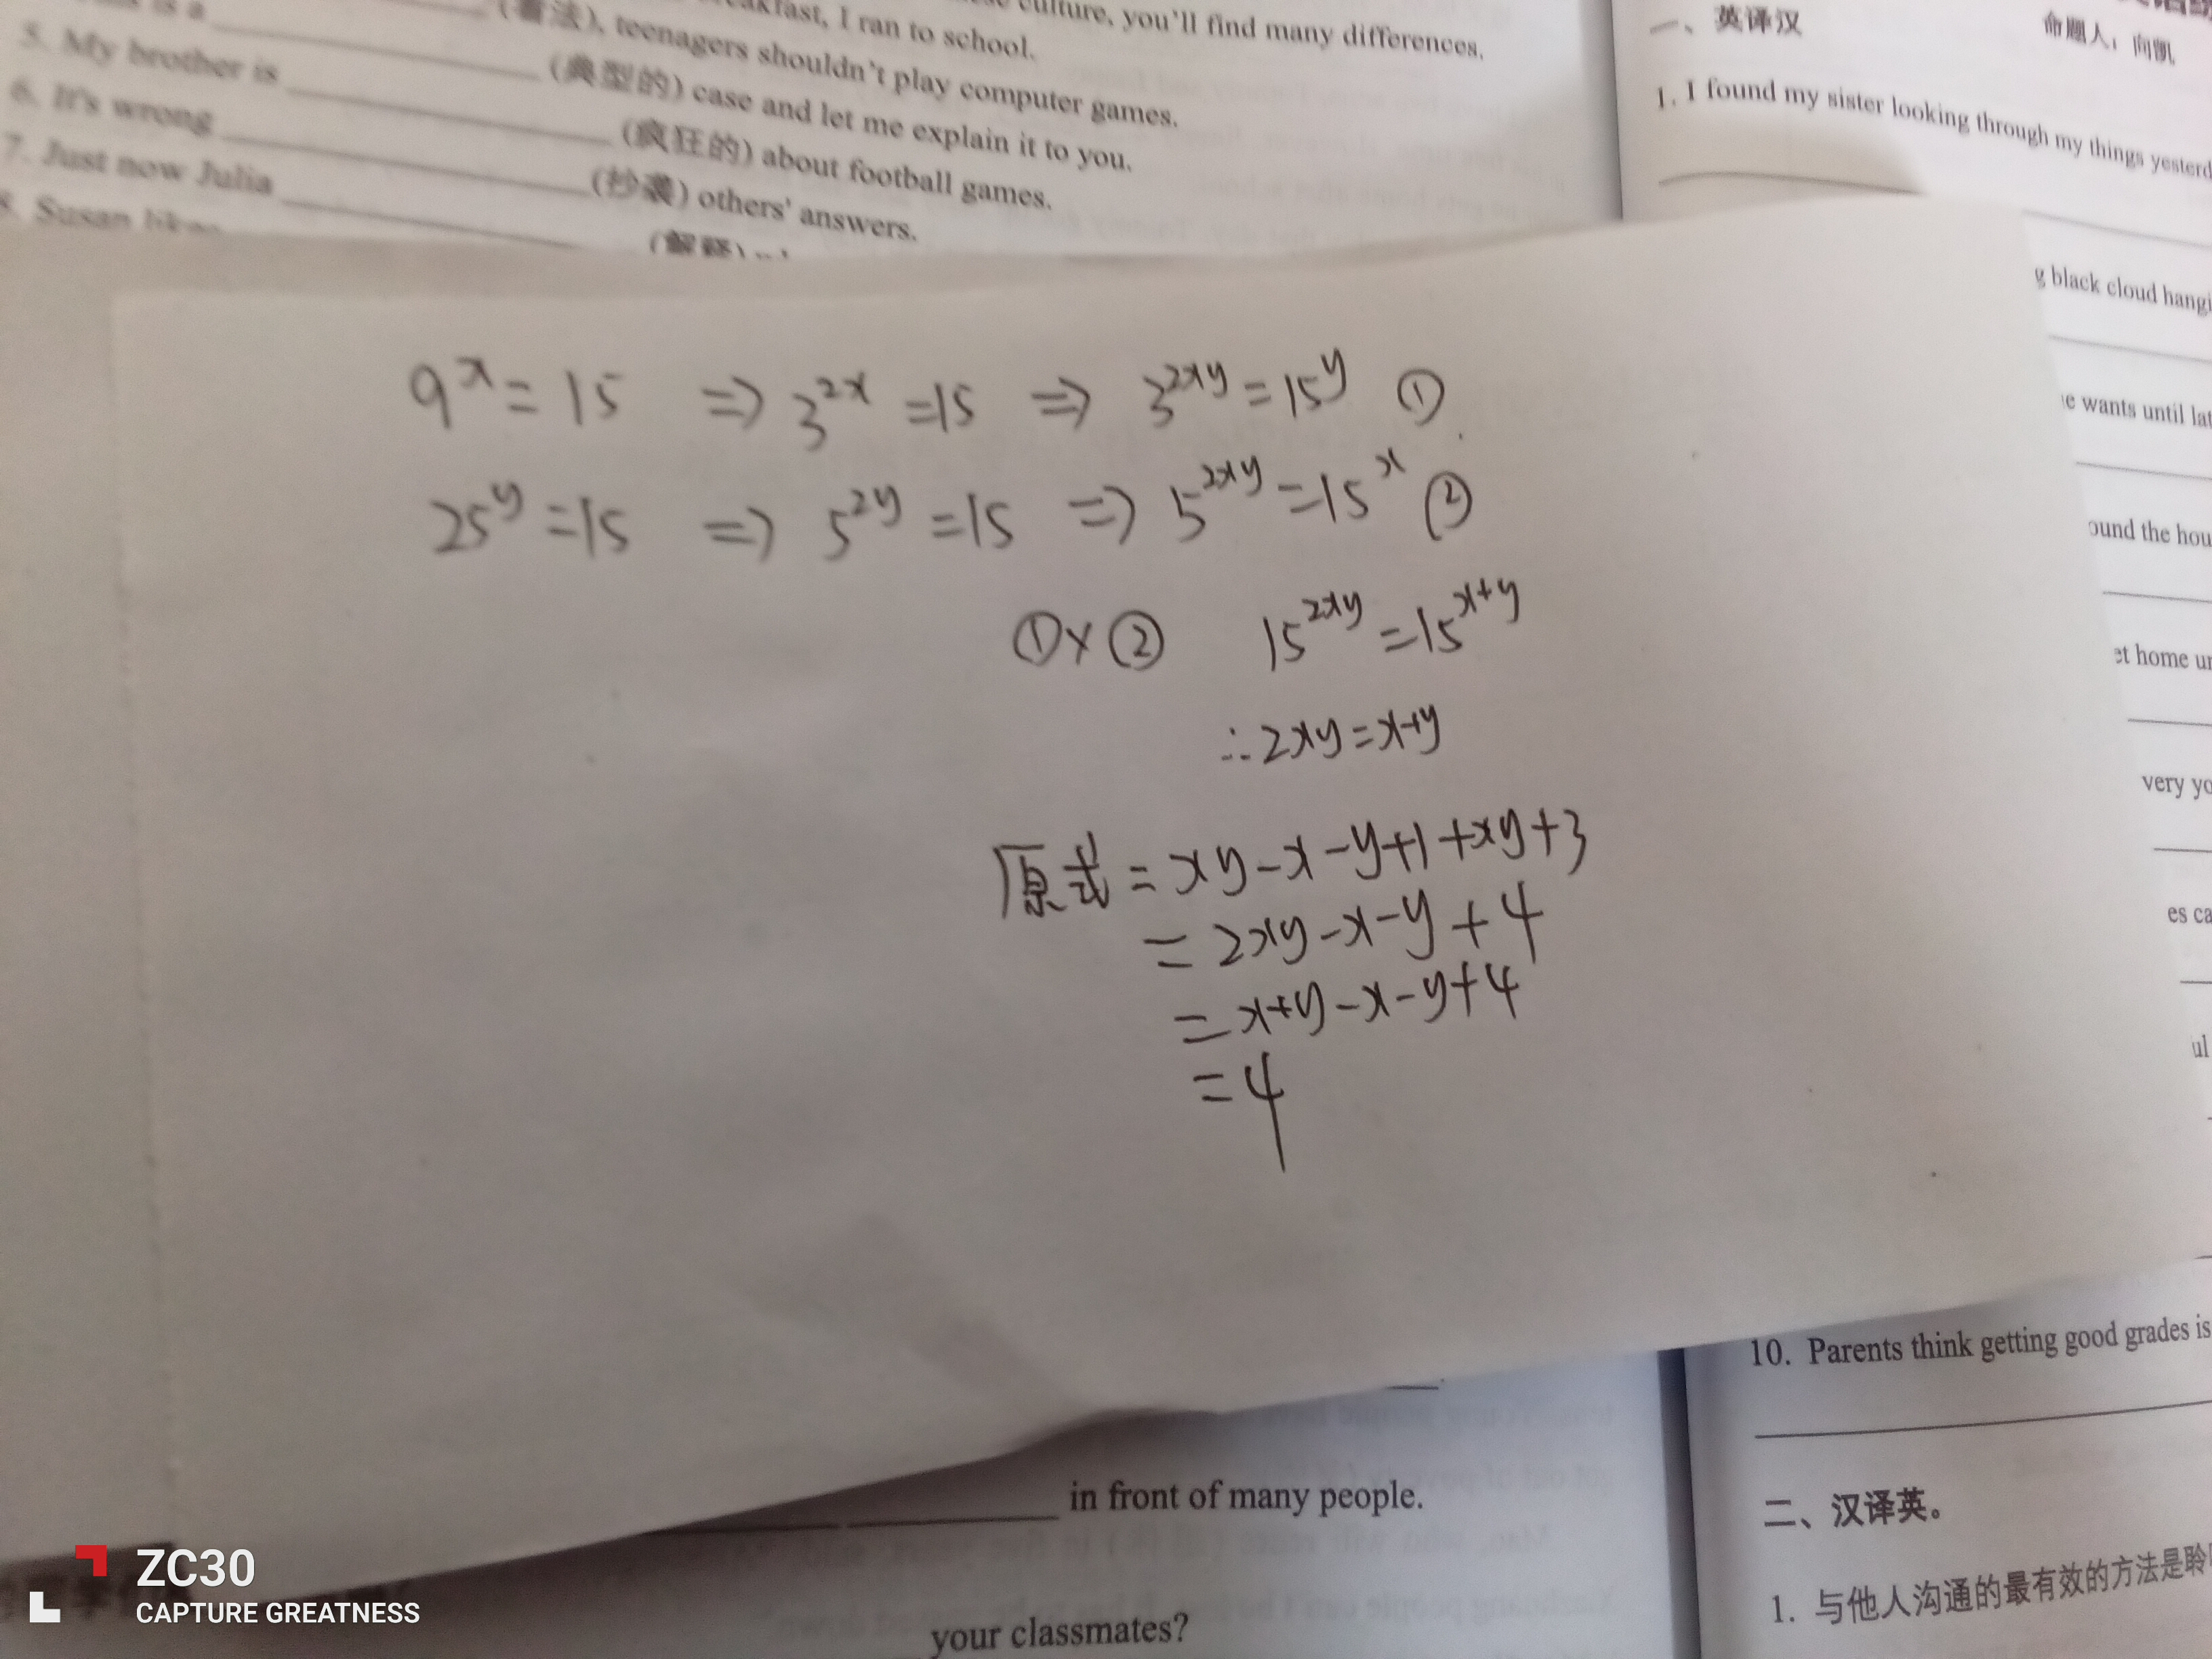 culture, you'll find many differences.
breakfast, I ran to school.
(看法), teenagers shouldn't play computer games.
5. My brother is (典型的) case and let me explain it to you.
6. It's wrong (疯狂的) about football games.
7. Just now Julia (抄袭) others' answers.
8. Susan likes (解释)
一、英译汉
命题人：向凯
1. I found my sister looking through my things yesterd
g black cloud hangi
e wants until lat
ound the hou
et home un
very yo
es ca
ul
9^x = 15 ⇒ 3^{2x} = 15 ⇒ 3^{2xy} = 15^y ①
25^y = 15 ⇒ 5^{2y} = 15 ⇒ 5^{2xy} = 15^x ②
①×② 15^{2xy} = 15^{x+y}
∴2xy=x+y
原式 = xy-x-y+1+xy+3
= 2xy-x-y+4
= x+y-x-y+4
= 4
10. Parents think getting good grades is
in front of many people.
二、汉译英。
1. 与他人沟通的最有效的方法是聆
your classmates?
ZC30
CAPTURE GREATNESS